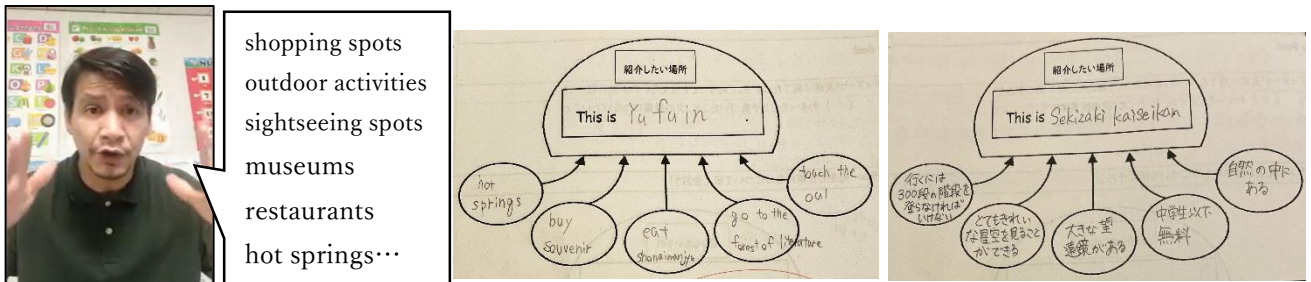 shopping spots
outdoor activities
sightseeing spots
museums
restaurants
hot springs…
紹介したい場所
This is Yufuin .
hot
springs
buy
souvenir
eat
shonaimanjyu
go to the
forest of literature
touch the
oul
紹介したい場所
This is Sekizaki kaiseikan
行くには
300段の階段を
登らなければ
いけない
とてもきれい
な星空を見ること
ができる
大きな望
遠鏡がある
中学生以下
無料
自然の中に
ある